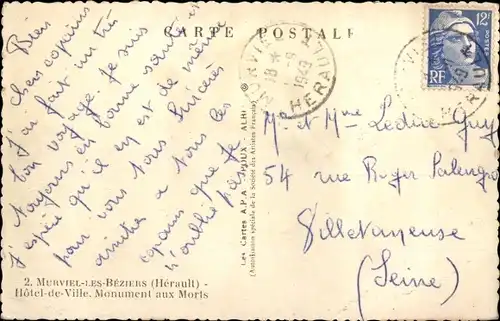 CARTE POSTALE
Bien chers copains
J'ai fait un très
bon voyage. Je suis
toujours en bonne santé et
j'espère qu'il en est de même
pour vous tous. Sincères
amitiés à tous les
copains que je
n'oublie pas
2. MURVIEL-LES-BÉZIERS (Hérault) -
Hôtel-de-Ville. Monument aux Morts
Les Cartes A.P.A.-POUX - ALBI
(Autorisation spéciale de la Société des Artistes Français)
18 * -9
1949
HERAULT
12F
RF
M. et Mme Leduc Guy
54 rue Roger Salengro
Villetaneuse
(Seine)